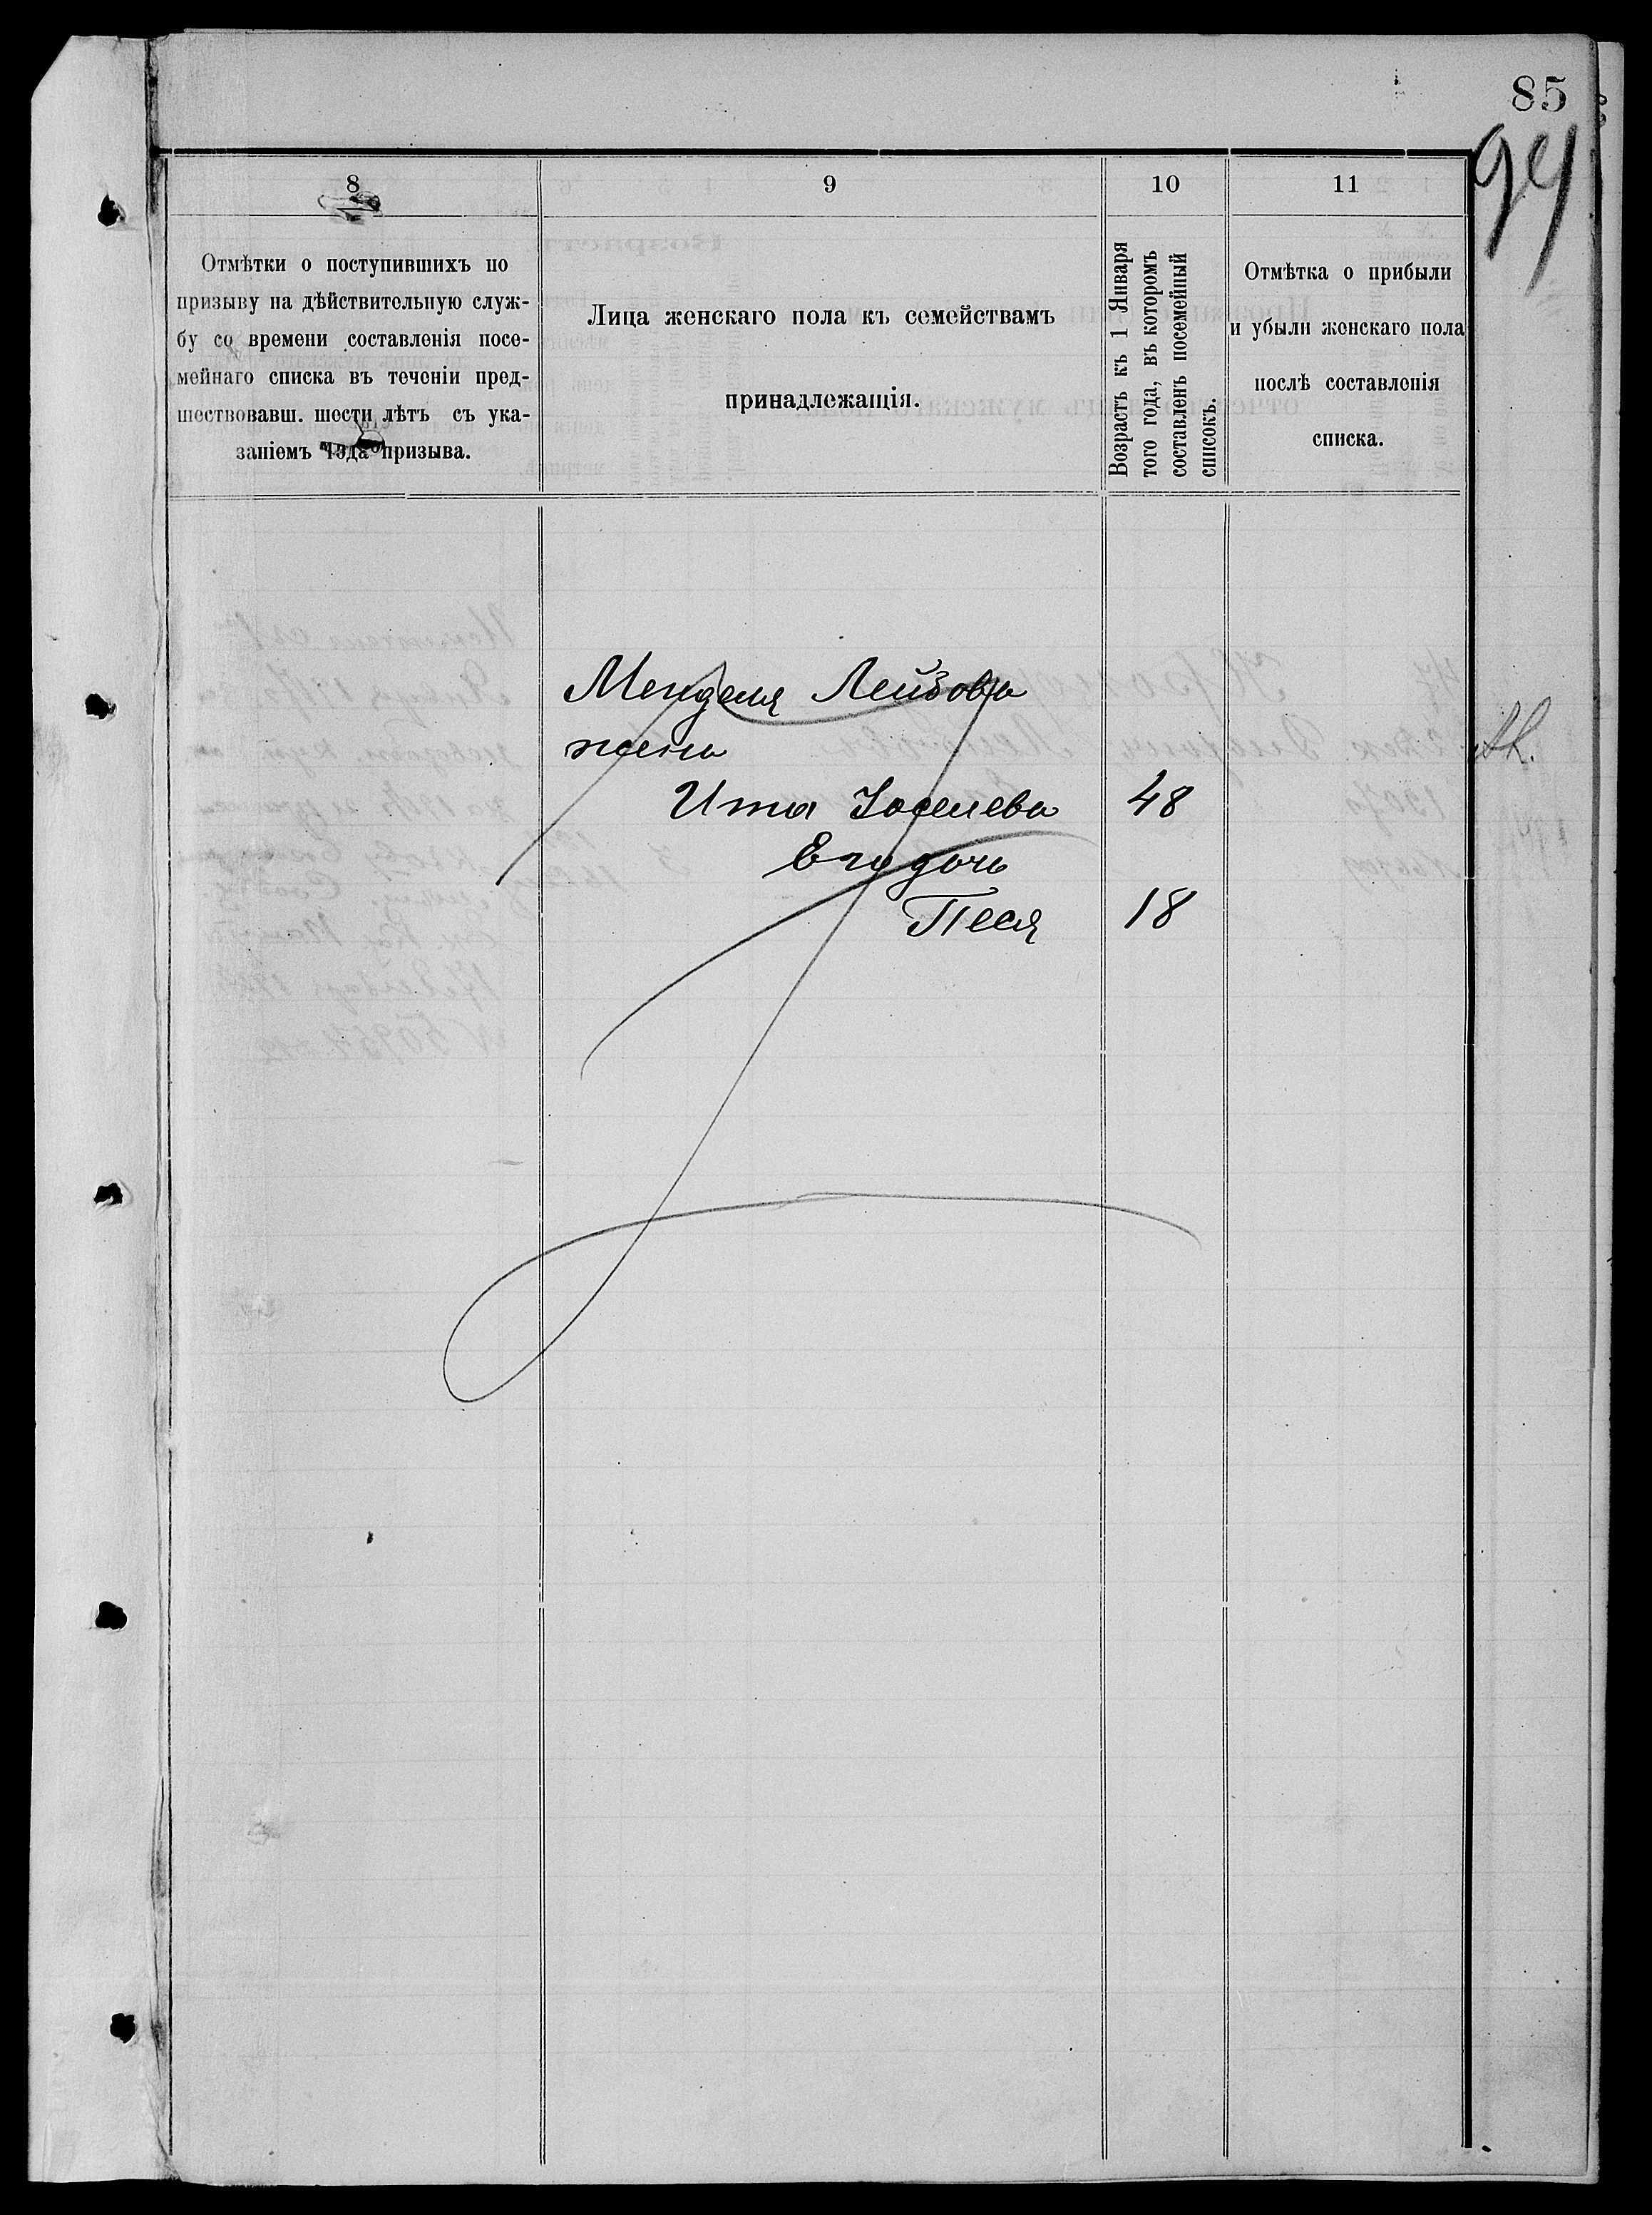 85
94
8
9
10
11
Отмѣтки о поступившихъ по
призыву на дѣйствительную служ-
бу со времени составленія посе-
мейнаго списка въ теченіи пред-
шествовавш. шести лѣтъ съ ука-
заніемъ года призыва.
Лица женскаго пола къ семействамъ
принадлежащія.
Возрастъ къ 1 Января
того года, въ которомъ
составленъ посемейный
списокъ.
Отмѣтка о прибыли
и убыли женскаго пола
послѣ составленія
списка.
Менделя Лейбова
жена
Ита Іоселева 48
Его дочь
Песя 18